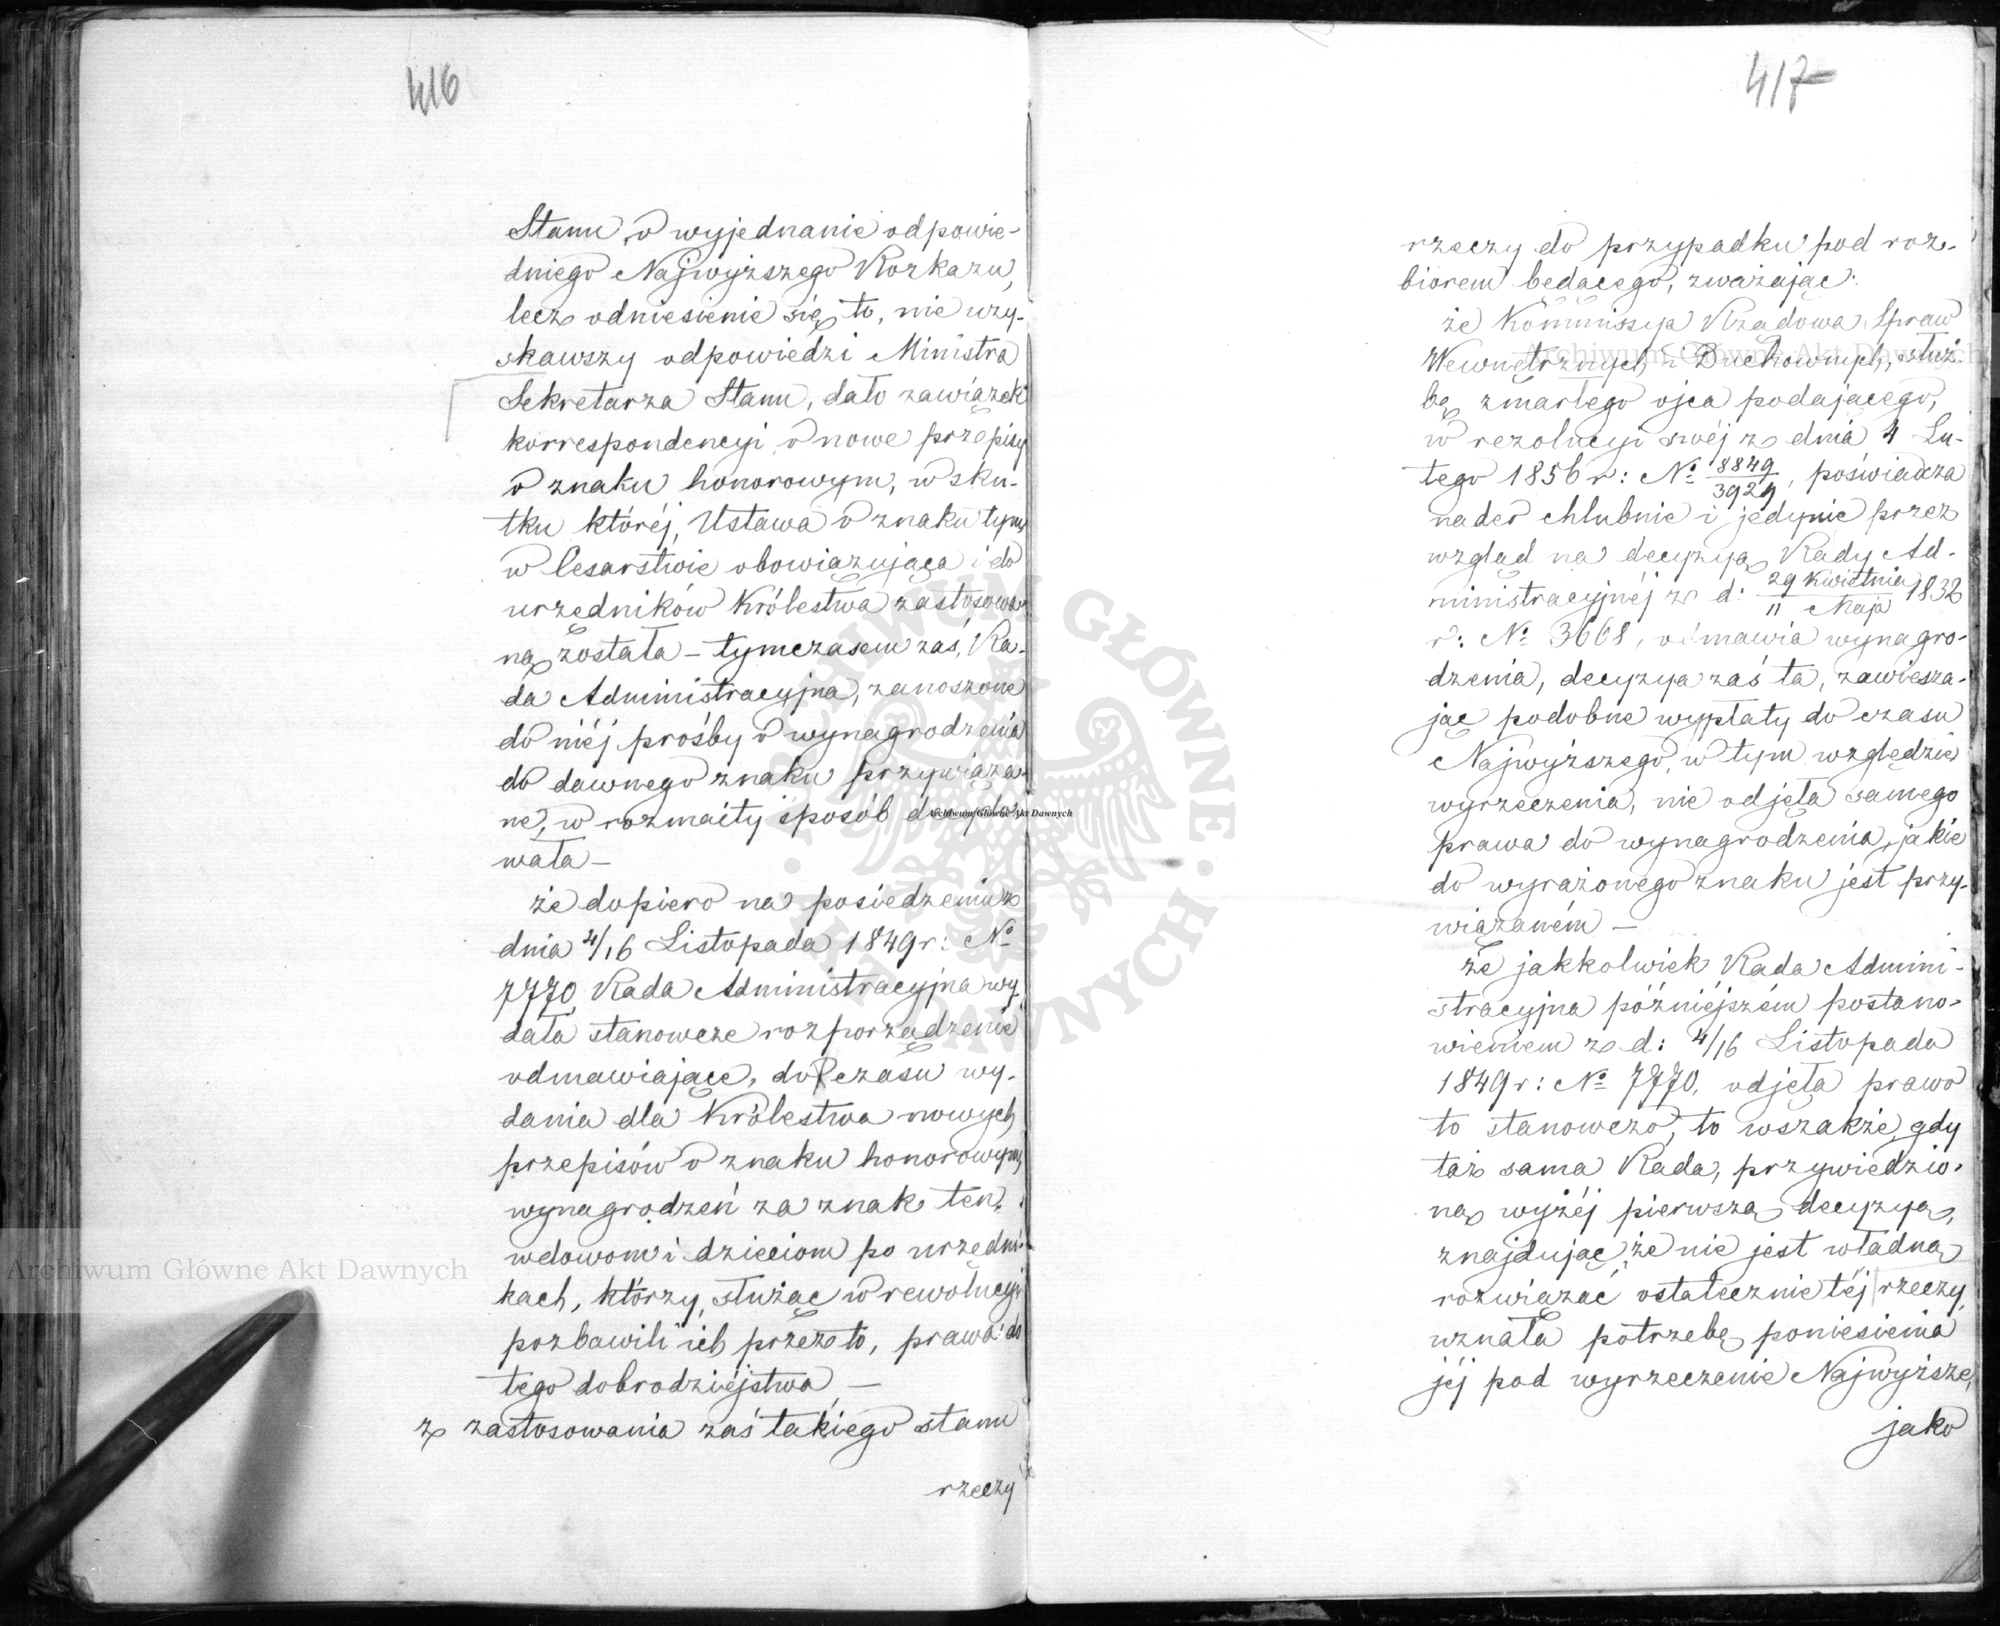 416
Stanu, o wyjednanie odpowie-
dniego Najwyższego Rozkazu,
lecz odniesienie się to, nie uzy-
skawszy odpowiedzi Ministra
Sekretarza Stanu, dało zawiązek
korrespondencyi o nowe przepisy
o znaku honorowym, w sku-
tku któréj, Ustawa o znaku tym
w Cesarstwie obowiązująca i do
urzędników Królestwa zastosowa-
ną została – tymczasem zaś, Ra-
da Administracyjna, zanoszone
do niéj prośby o wynagrodzenia
do dawnego znaku przywiąza-
ne, w rozmaity sposób decydo-
wała –
że dopiero na posiedzeniu z
dnia 4/16 Listopada 1849 r: No
7770, Rada Administracyjna wy-
dała stanowcze rozporządzenie
odmawiające, do czasu wy-
dania dla Królestwa nowych
przepisów o znaku honorowym,
wynagrodzeń za znak ten,
wdowom i dzieciom po urzędni-
kach, którzy, służąc w rewolucyi
pozbawili ich przez to, prawa do
tego dobrodziéjstwa –
z zastosowania zaś takiego stanu
rzeczy
417
rzeczy do przypadku pod roz-
biorem będącego, zważając:
że Kommissya Rządowa Spraw
Wewnętrznych i Duchownych, służ-
bę zmarłego ojca podającego,
w rezolucyi swéj z dnia 4 Lu-
tego 1856 r: No 8849/3929, poświadcza
nader chlubnie i jedynie przez
wzgląd na decyzyą Rady Ad-
ministracyjnéj z d: 29 Kwietnia/11 Maja 1832
r: No 3668, odmawia wynagro-
dzenia, decyzya zaś ta, zawiesza-
jąc podobne wypłaty do czasu
Najwyższego, w tym względzie
wyrzeczenia, nie odjęła samego
prawa do wynagrodzenia, jakie
do wyrażonego znaku jest przy-
wiązaném –
że jakkolwiek Rada Admini-
stracyjna późniéjszém postano-
wieniem z d: 4/16 Listopada
1849 r: No 7770, odjęła prawo
to stanowczo, to wszakże, gdy
taż sama Rada, przywiedzio-
ną wyżéj pierwszą decyzyą,
znajdując, że nie jest władną
rozwiązać ostatecznie téj rzeczy,
uznała potrzebę poniesienia
jéj pod wyrzeczenie Najwyższe,
jako
Archiwum Główne Akt Dawnych
Archiwum Główne Akt Dawnych
Archiwum Główne Akt Dawnych
ARCHIWUM GŁÓWNE AKT DAWNYCH